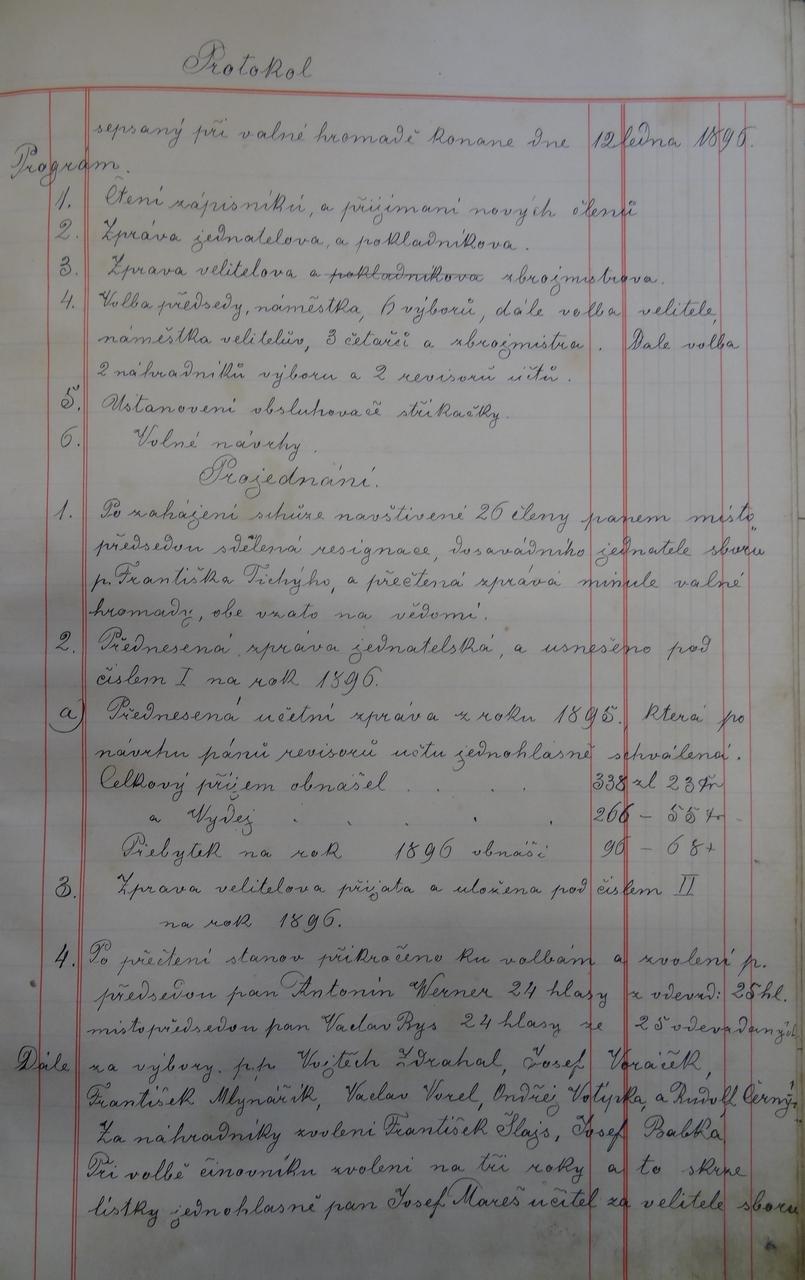 Protokol
sepsaný při valné hromadě konane dne 12 ledna 1896.
Prográm.
1. Čtení zápisníků, a přijímaní nových členů
2. Zpráva jednatelova, a pokladníkova.
3. Zprava velitelova a pokladníkova zbrojmistrova.
4. Volba předsedy, náměstka, 6 výborů, dále volba velitele,
náměstka velitelův, 3 četařů a zbrojmistra. Dale volba
2 náhradníků výboru a 2 revisorů účtů.
5. Ustanovení obsluhovačě střikačky.
6. Volné návrhy.
Projednání.
1. Po zahájení schůze navštivené 26 členy panem místo
předsedou sdělená resignace, dosavádního jednatele sboru
p. Františka Tichýho, a přečtená zpráva minule valné
hromady, obe vzato na vědomí.
2. Přednesená zpráva jednatelská, a usnešeno pod
čislem I na rok 1896.
a) Přednesená učetní zpráva z roku 1895., která po
návrhu pánů revisorů uctu jednohlasně schválená.
Celkový příjem obnášel . . . . 338 zl 23 kr
a Vydej . . . . . 266 - 55 kr -
Přebytek na rok 1896 obnáší 96 - 68 +
3. Zprava velitelova přijata a uložena pod čislem II
na rok 1896.
4. Po přečtení stanov přikročeno ku volbám a zvolení p.
předsedou pan Antonín Werner 24 hlasy z odevzd: 25 hl.
mistopředsedou pan Vaclav Rys 24 hlasy ze 25 odevzdaných
Dále za výbory. p.p. Vojtěch Zdrahal, Josef Voráček,
František Mlynářik, Vaclav Vorel, Ondřej Votýpka, a Rudolf Černý.
Za náhradníky zvoleni František Šlajs, Josef Babka
Při volbě činovníku zvoleni na tři roky a to skrze
lístky jednohlasně pan Josef Mareš učitel za velitele sboru